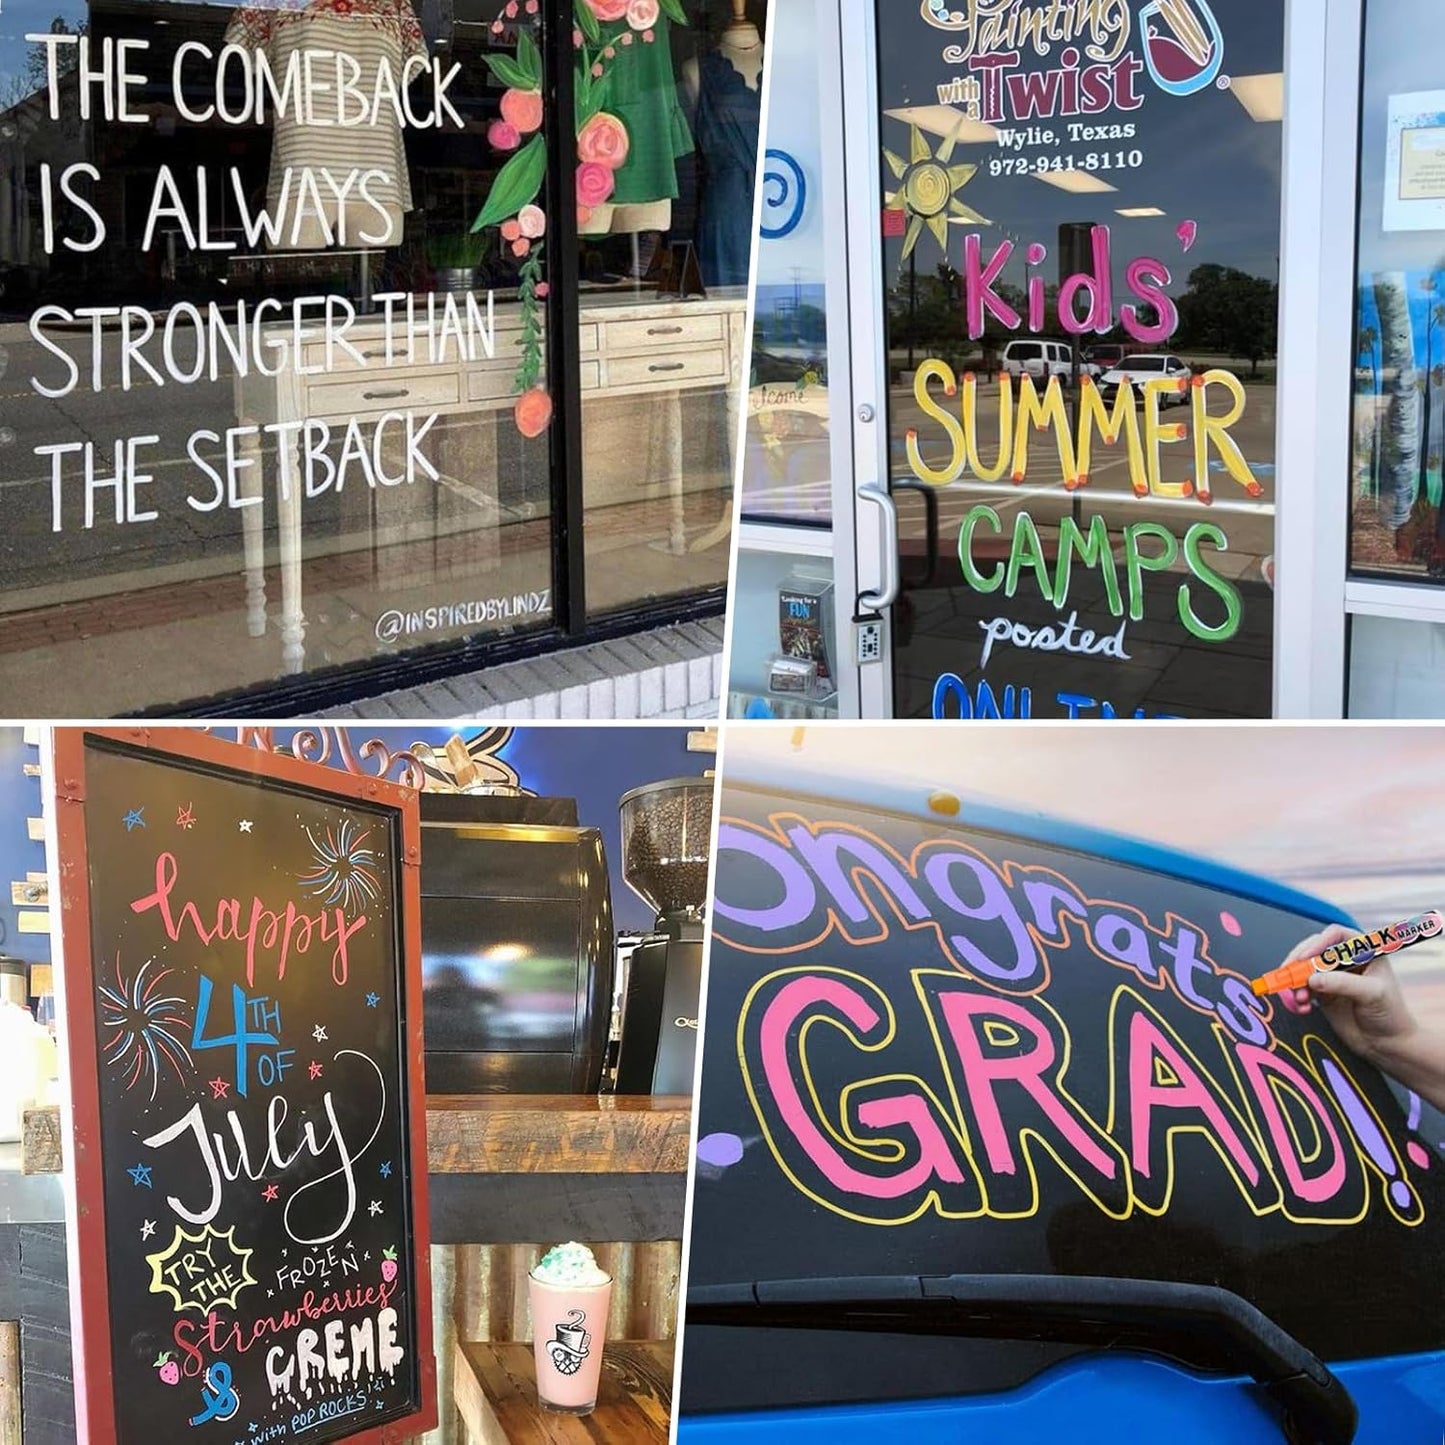 THE COMEBACK
IS ALWAYS
STRONGER THAN
THE SETBACK
@INSPIREDBYLINDZ
Painting
with a Twist
®
Wylie, Texas
972-941-8110
Kids'
SUMMER
CAMPS
posted
ONLINE
Looking for a
FUN
happy
4TH
OF
July
TRY
THE
FROZEN
Strawberries
&
CREME
with POP ROCKS
ongrats
GRAD!
CHALK MARKER